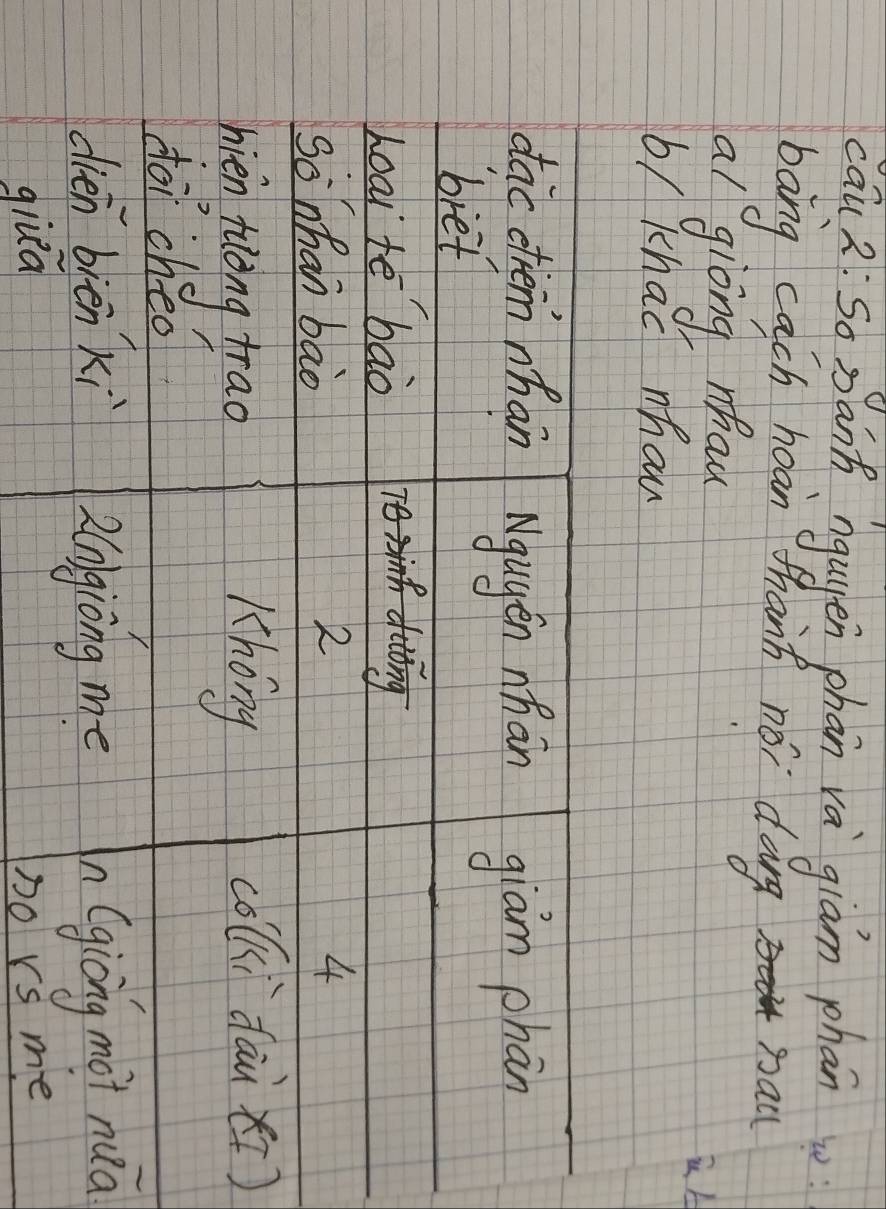 câu 2: So sánh nguyên phân và giảm phân
bằng cách hoàn thành nội dung sau
a/ giống nhau
b/ khác nhau
đặc điểm nhận biết Nguyên nhân giảm phân
Loại tế bào TB sinh dưỡng
Số nhân bào 2 4
hiện tượng trao đổi chéo Không có (kì đầu I)
diễn biến kì giữa 2(n) giống mẹ n (giống một nửa so vs mẹ